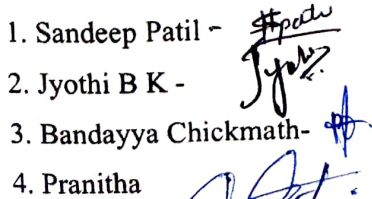 1. Sandeep Patil -
2. Jyothi B K -
3. Bandayya Chickmath-
4. Pranitha